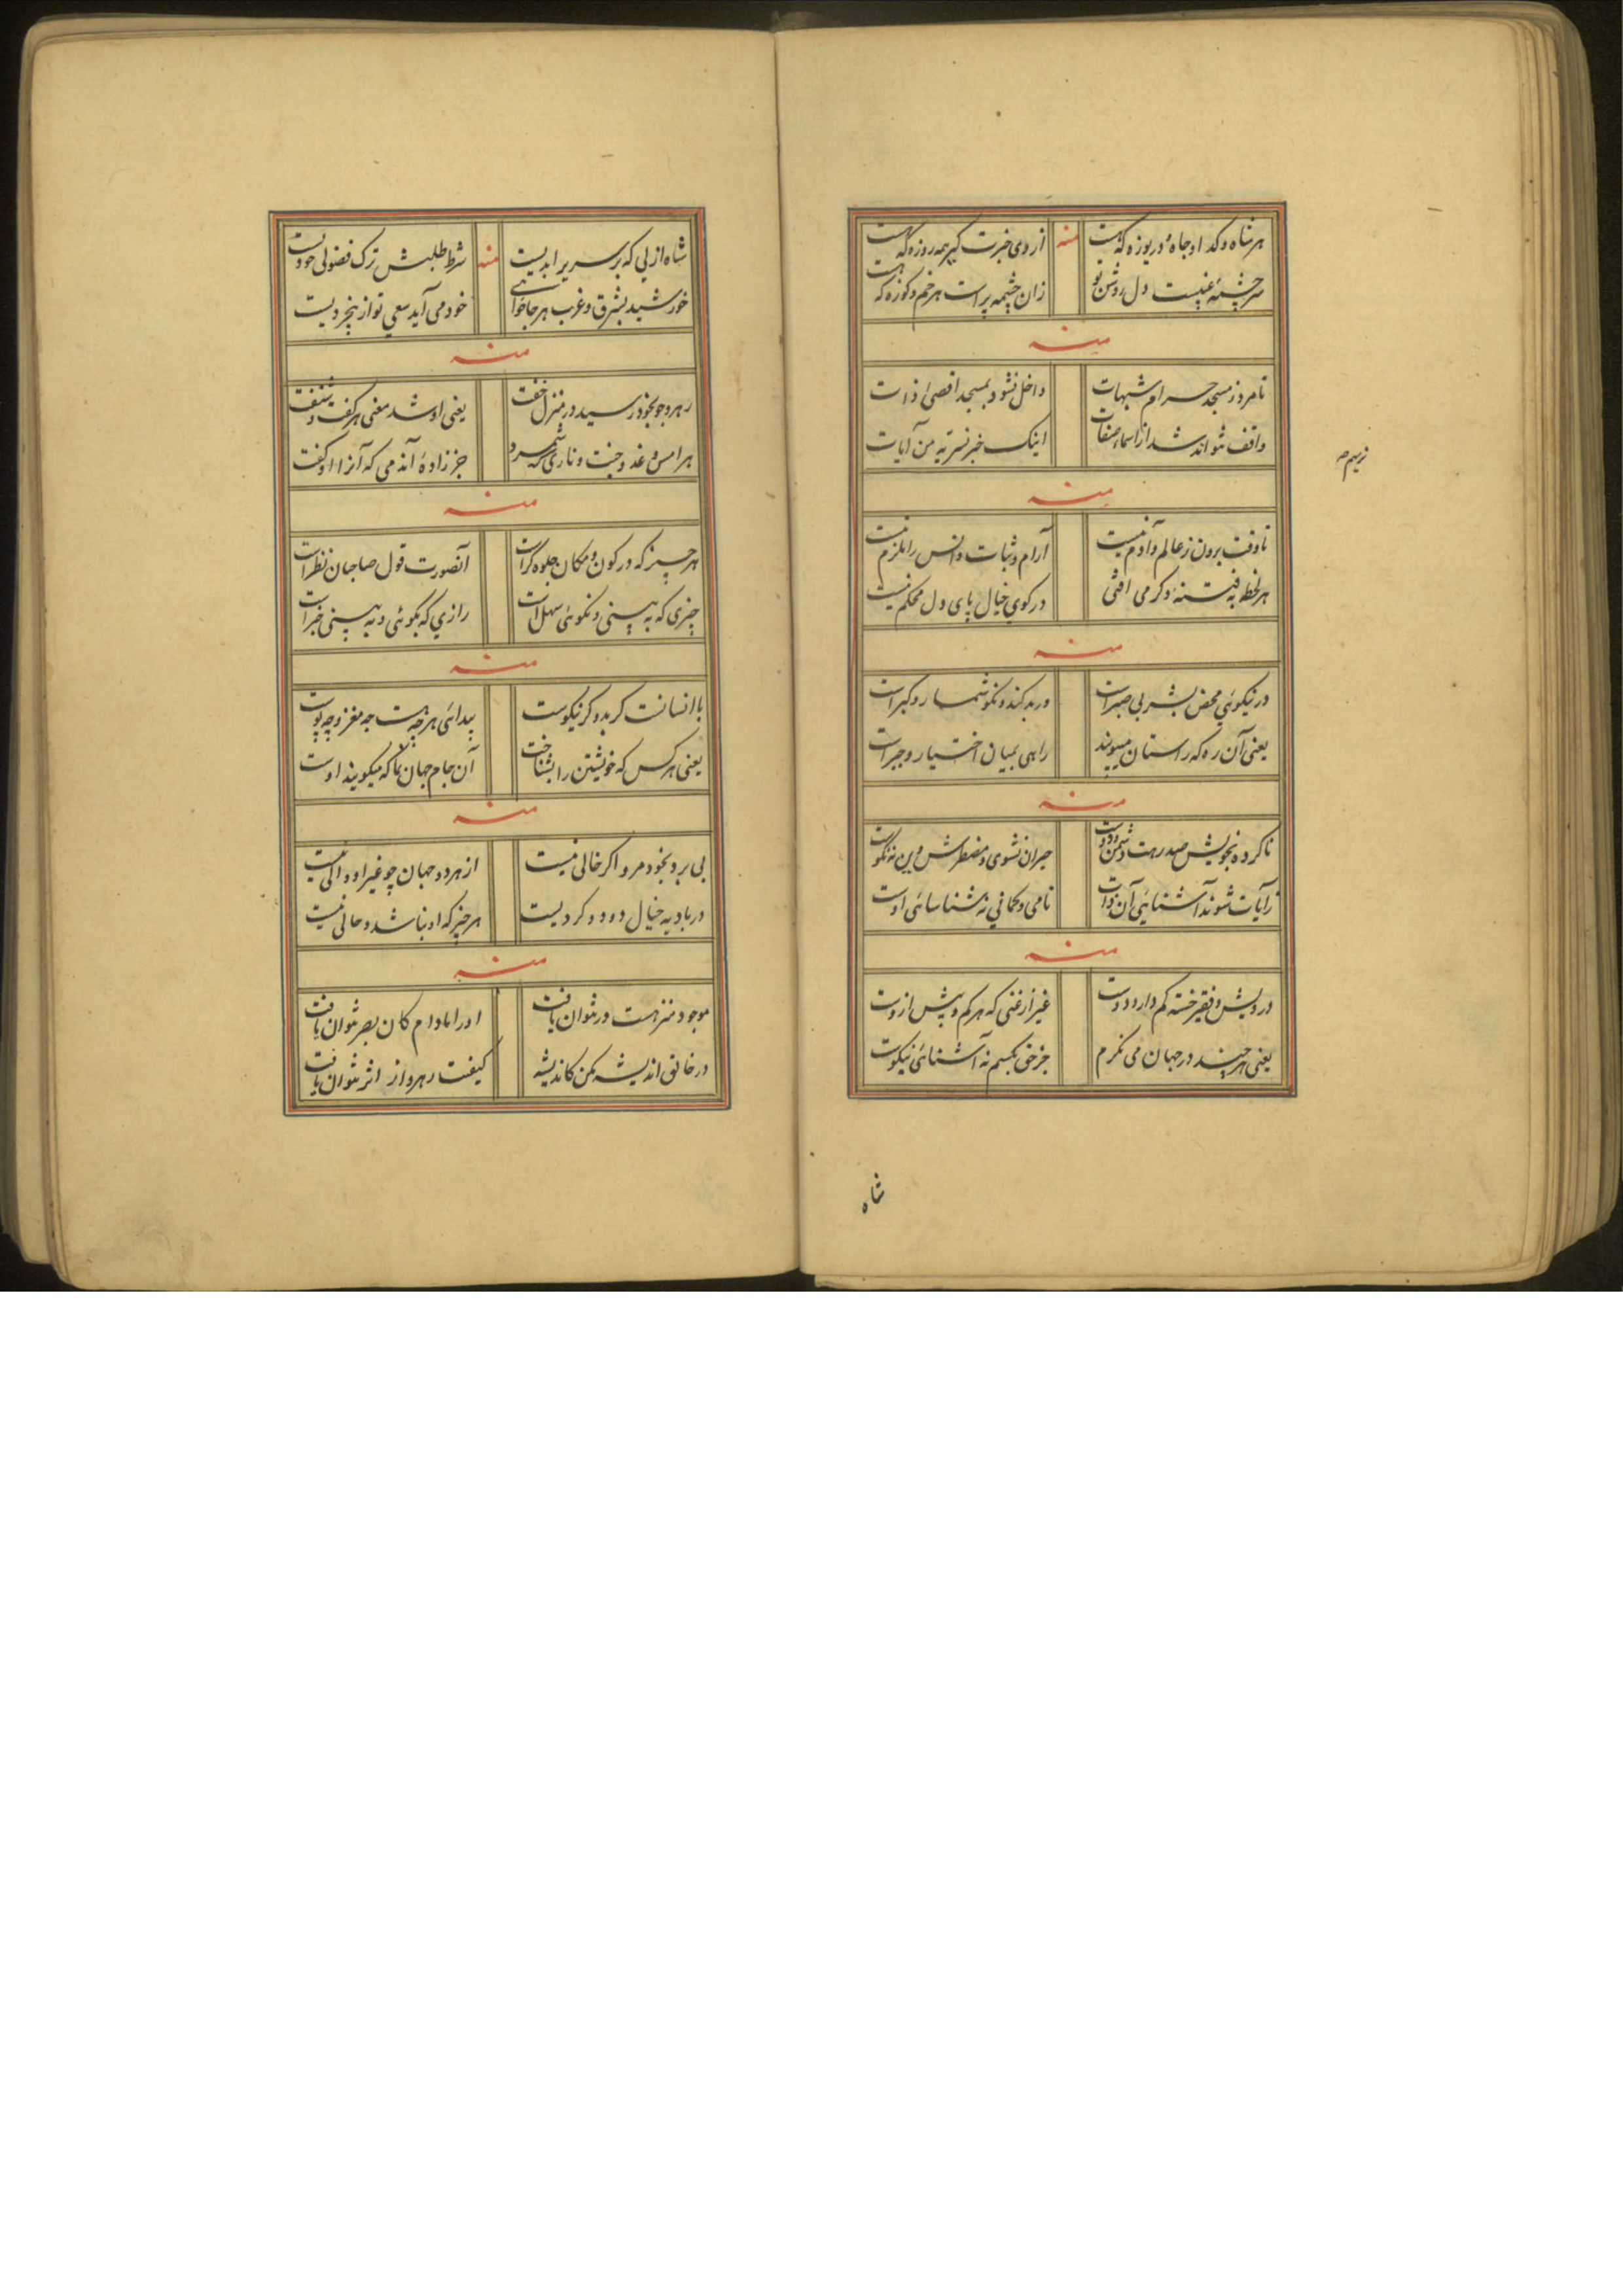 هر شاه و كدا و جاه دريوزه كه هست
منه
از وى خبرت كير همه روزه كه هست
سرچشمهٔ غيبست دل روشن تو
زان چشمه پر است هر خم و كوزه كه هست
منه
نامرد ز مسجد حرام شبهات
داخل نشود بمسجد اقصى ذات
واقف نتواند شد از اسماء صفات
اينك خبر نستريه من آيات
منه
تا وقت برون ز عالم و آدم نيست
آرام و ثبات و انس را ملزم نيست
هر لحظه به فتنهٔ دكر مى افتى
در كوي خيال پاى دل محكم نيست
منه
در نيكوئي محض بشر بى صبر است
ور بد كند و نكو شمارد كبر است
يعنى آن ره كه راستان ميپويند
راهى بميان اختيار و جبر است
منه
ناكرده بخويش صد رهت دشمن و دوست
حيران نشوى و مضطرش وين نه نكوست
ز آيات شوند آشنايي آن ذات
نامى و كمانى نه شناسائى اوست
منه
درويش و فقير خسته كم دارد دوست
غير از غنى كه هر كم و بيش ازوست
يعنى هر چند در جهان مى نكرم
جز حق بكسم نه آشنائى نيكوست
نريهم صه
شاه
شاه ازلي كه بر سرير ابديست
منه
شرط طلبش ترك فضولى خوديست
خورشيد بشرق و غرب هر جا خواهى
خود مى آيد سعي تو از بيخرديست
منه
رهرو چو بخود رسيد در منزل خفت
يعنى او شد معنى هر كفت و شنفت
هر امس و غد و جنت و نارى كه شمرد
جز زادهٔ آن دمى كه آنرا او كفت
منه
هر چيز كه در كون و مكان جلوه كر است
آنصورت قول صاحبان نظر است
چيزى كه به بينى و نكوئى سهل است
رازي كه بكوئى و نه بينى خبر است
منه
با انسانت كر بد و كر نيكوست
پيدائى هر چه هست چه مغز و چه پوست
يعنى هر كس كه خويشتن را بشناخت
آن جام جهان نما كه ميكويند اوست
منه
بى بر و بخود مرو اكر خالى نيست
از هر دو جهان چو غير او والى نيست
در باديه خيال دود و كرديست
هر چيز كه او نباشد و حالى نيست
منه
موجود منزهست ور نتوان يافت
او را مادام كان بصر نتوان يافت
در خالق انديشه مكن كانديشه
كيفت رهرو از اثر نتوان يافت